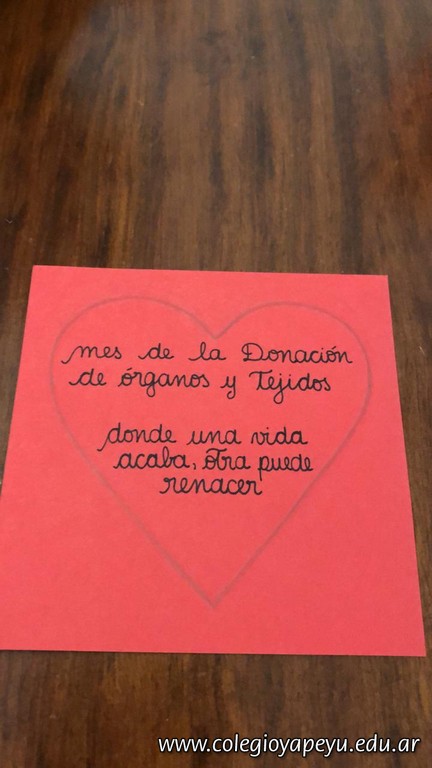 mes de la Donación
de órganos y Tejidos
donde una vida
acaba, otra puede
renacer
www.colegioyapeyu.edu.ar